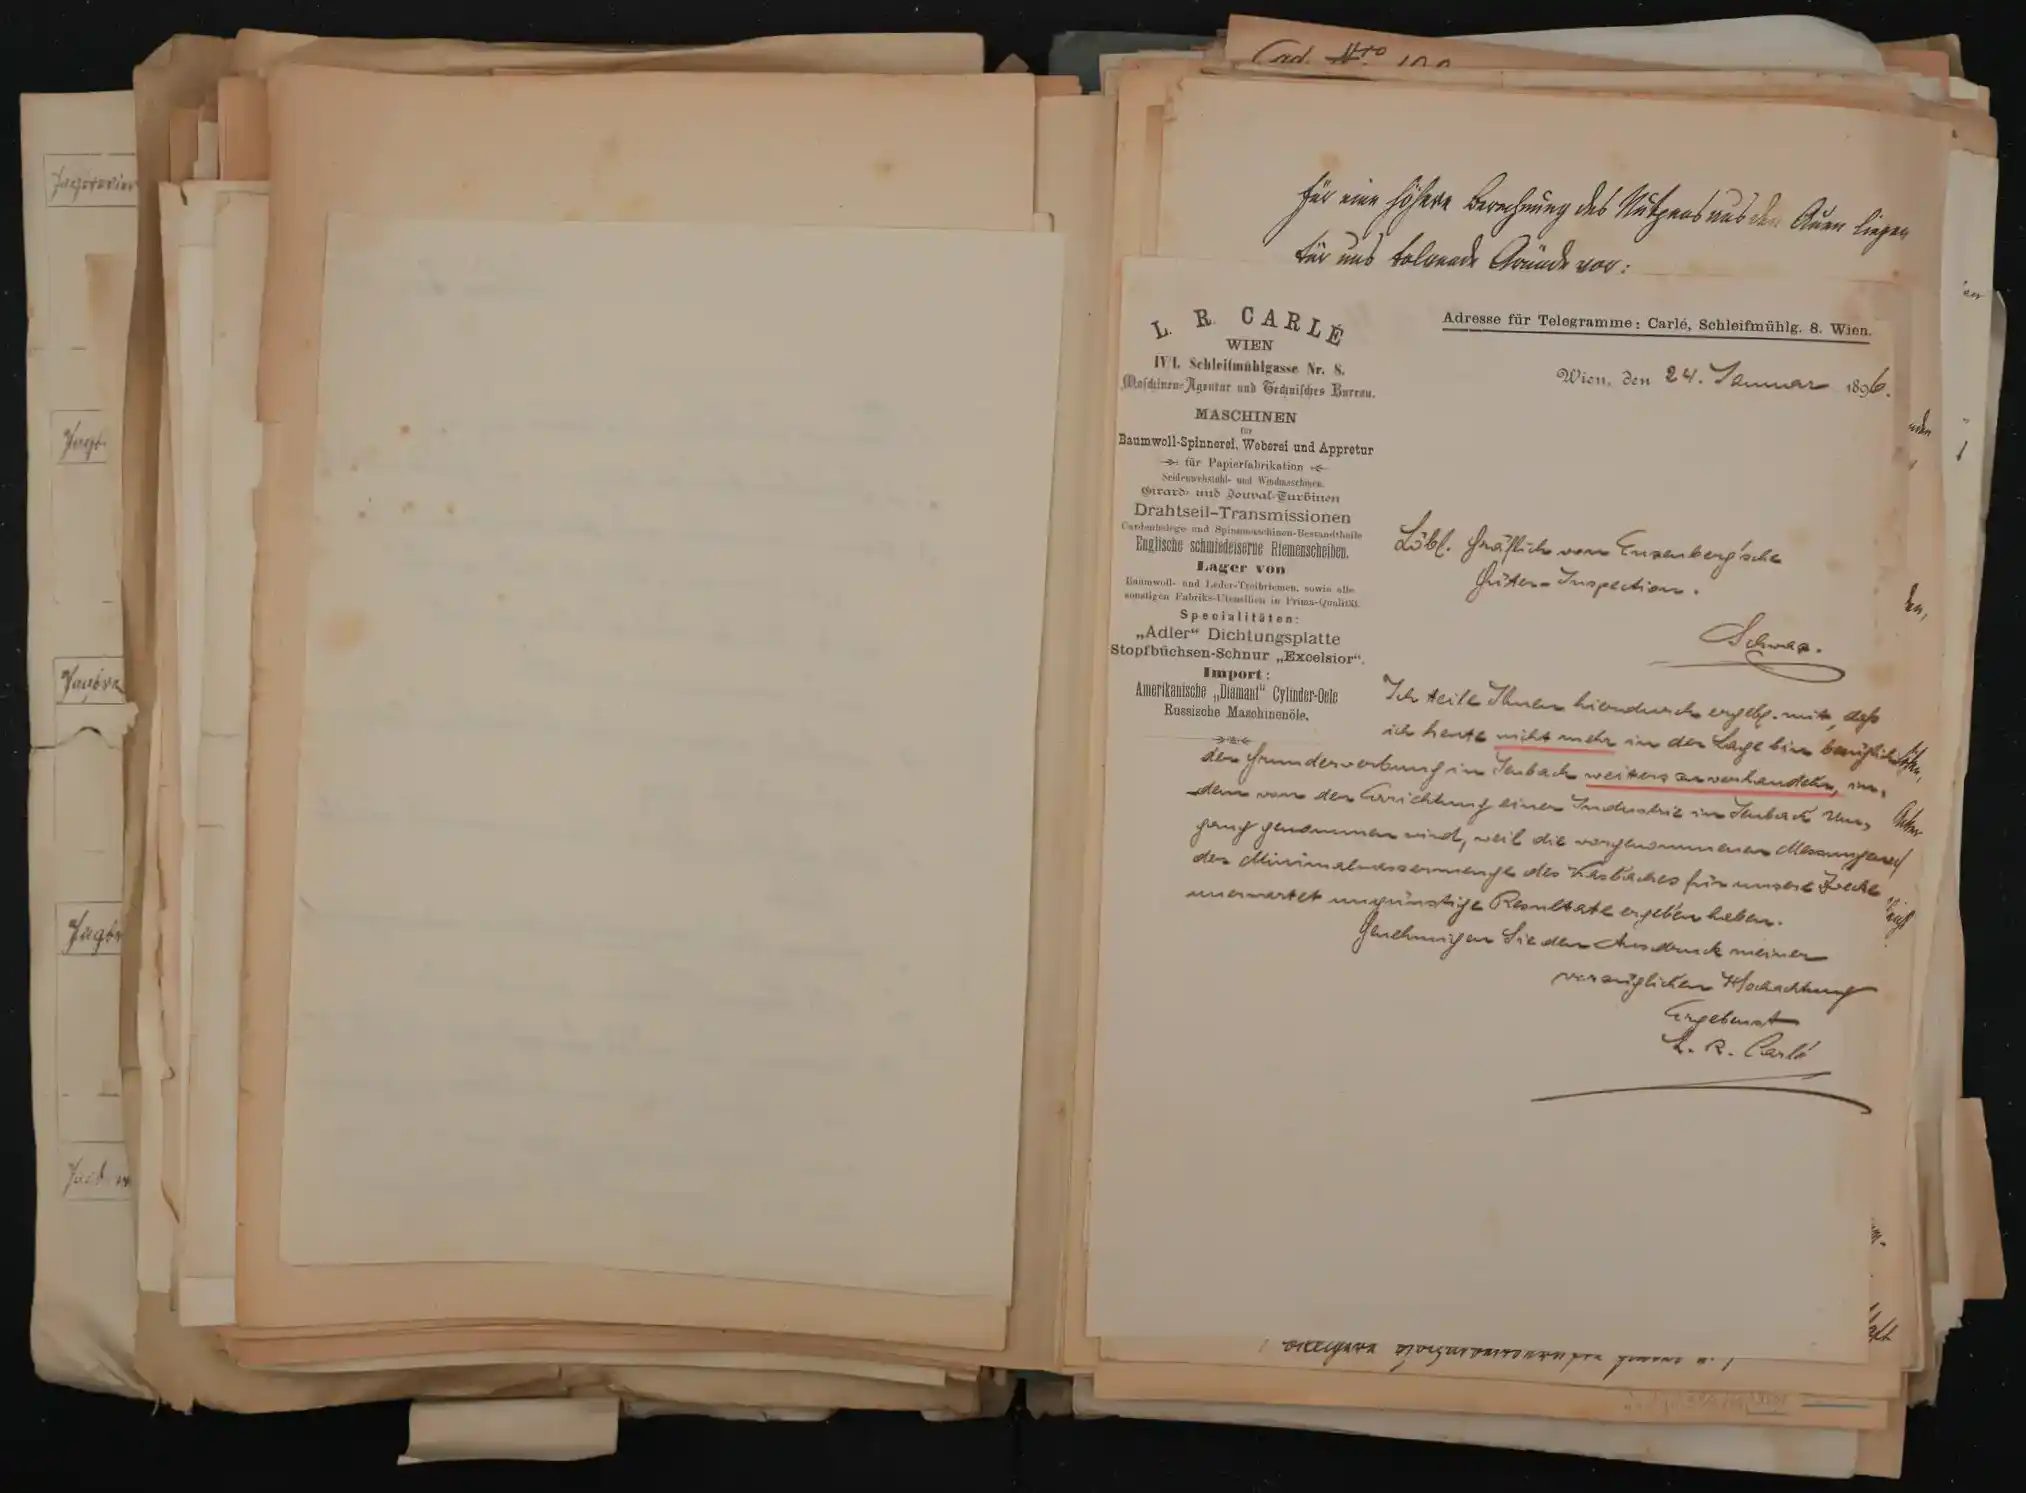 Jagdrevier
Jagd-
Jagdre
Jagdr
Cad. Nro 199
für eine höhere Berechnung des Nutzens aus den Auen liegen
für uns folgende Gründe vor:
L. R. CARLÉ
WIEN
IV/1. Schleifmühlgasse Nr. 8.
Maschinen-Agentur und Technisches Bureau.
MASCHINEN
für
Baumwoll-Spinnerei, Weberei und Appretur
für Papierfabrikation
Seidenwebstuhl- und Windmaschinen.
Girard- und Jonval-Turbinen
Drahtseil-Transmissionen
Cardenbelege und Spinnmaschinen-Bestandtheile
Englische schmiedeiserne Riemenscheiben.
Lager von
Baumwoll- und Leder-Treibriemen, sowie alle
sonstigen Fabriks-Utensilien in Prima-Qualität.
Specialitäten:
„Adler“ Dichtungsplatte
Stopfbüchsen-Schnur „Excelsior“.
Import:
Amerikanische „Diamant“ Cylinder-Oele
Russische Maschinenöle.
Adresse für Telegramme: Carlé, Schleifmühlg. 8. Wien.
Wien, den 24. Januar 1896.
Löbl. Gräflich von Enzenberg'sche
Güter-Inspection.
Schwaz.
Ich teile Ihnen hierdurch ergeb. mit, daß
ich heute nicht mehr in der Lage bin bezüglich
der Grunderwerbung in Jenbach weiters zu verhandeln, in-
dem von der Errichtung einer Industrie in Jenbach Um-
gang genommen wird, weil die vorgenommenen Messungen
der Minimalwassermenge des Kasbaches für unsere Zwecke
unerwartet ungünstige Resultate ergeben haben.
Genehmigen Sie den Ausdruck meiner
vorzüglichen Hochachtung
Ergebenst
L. R. Carlé